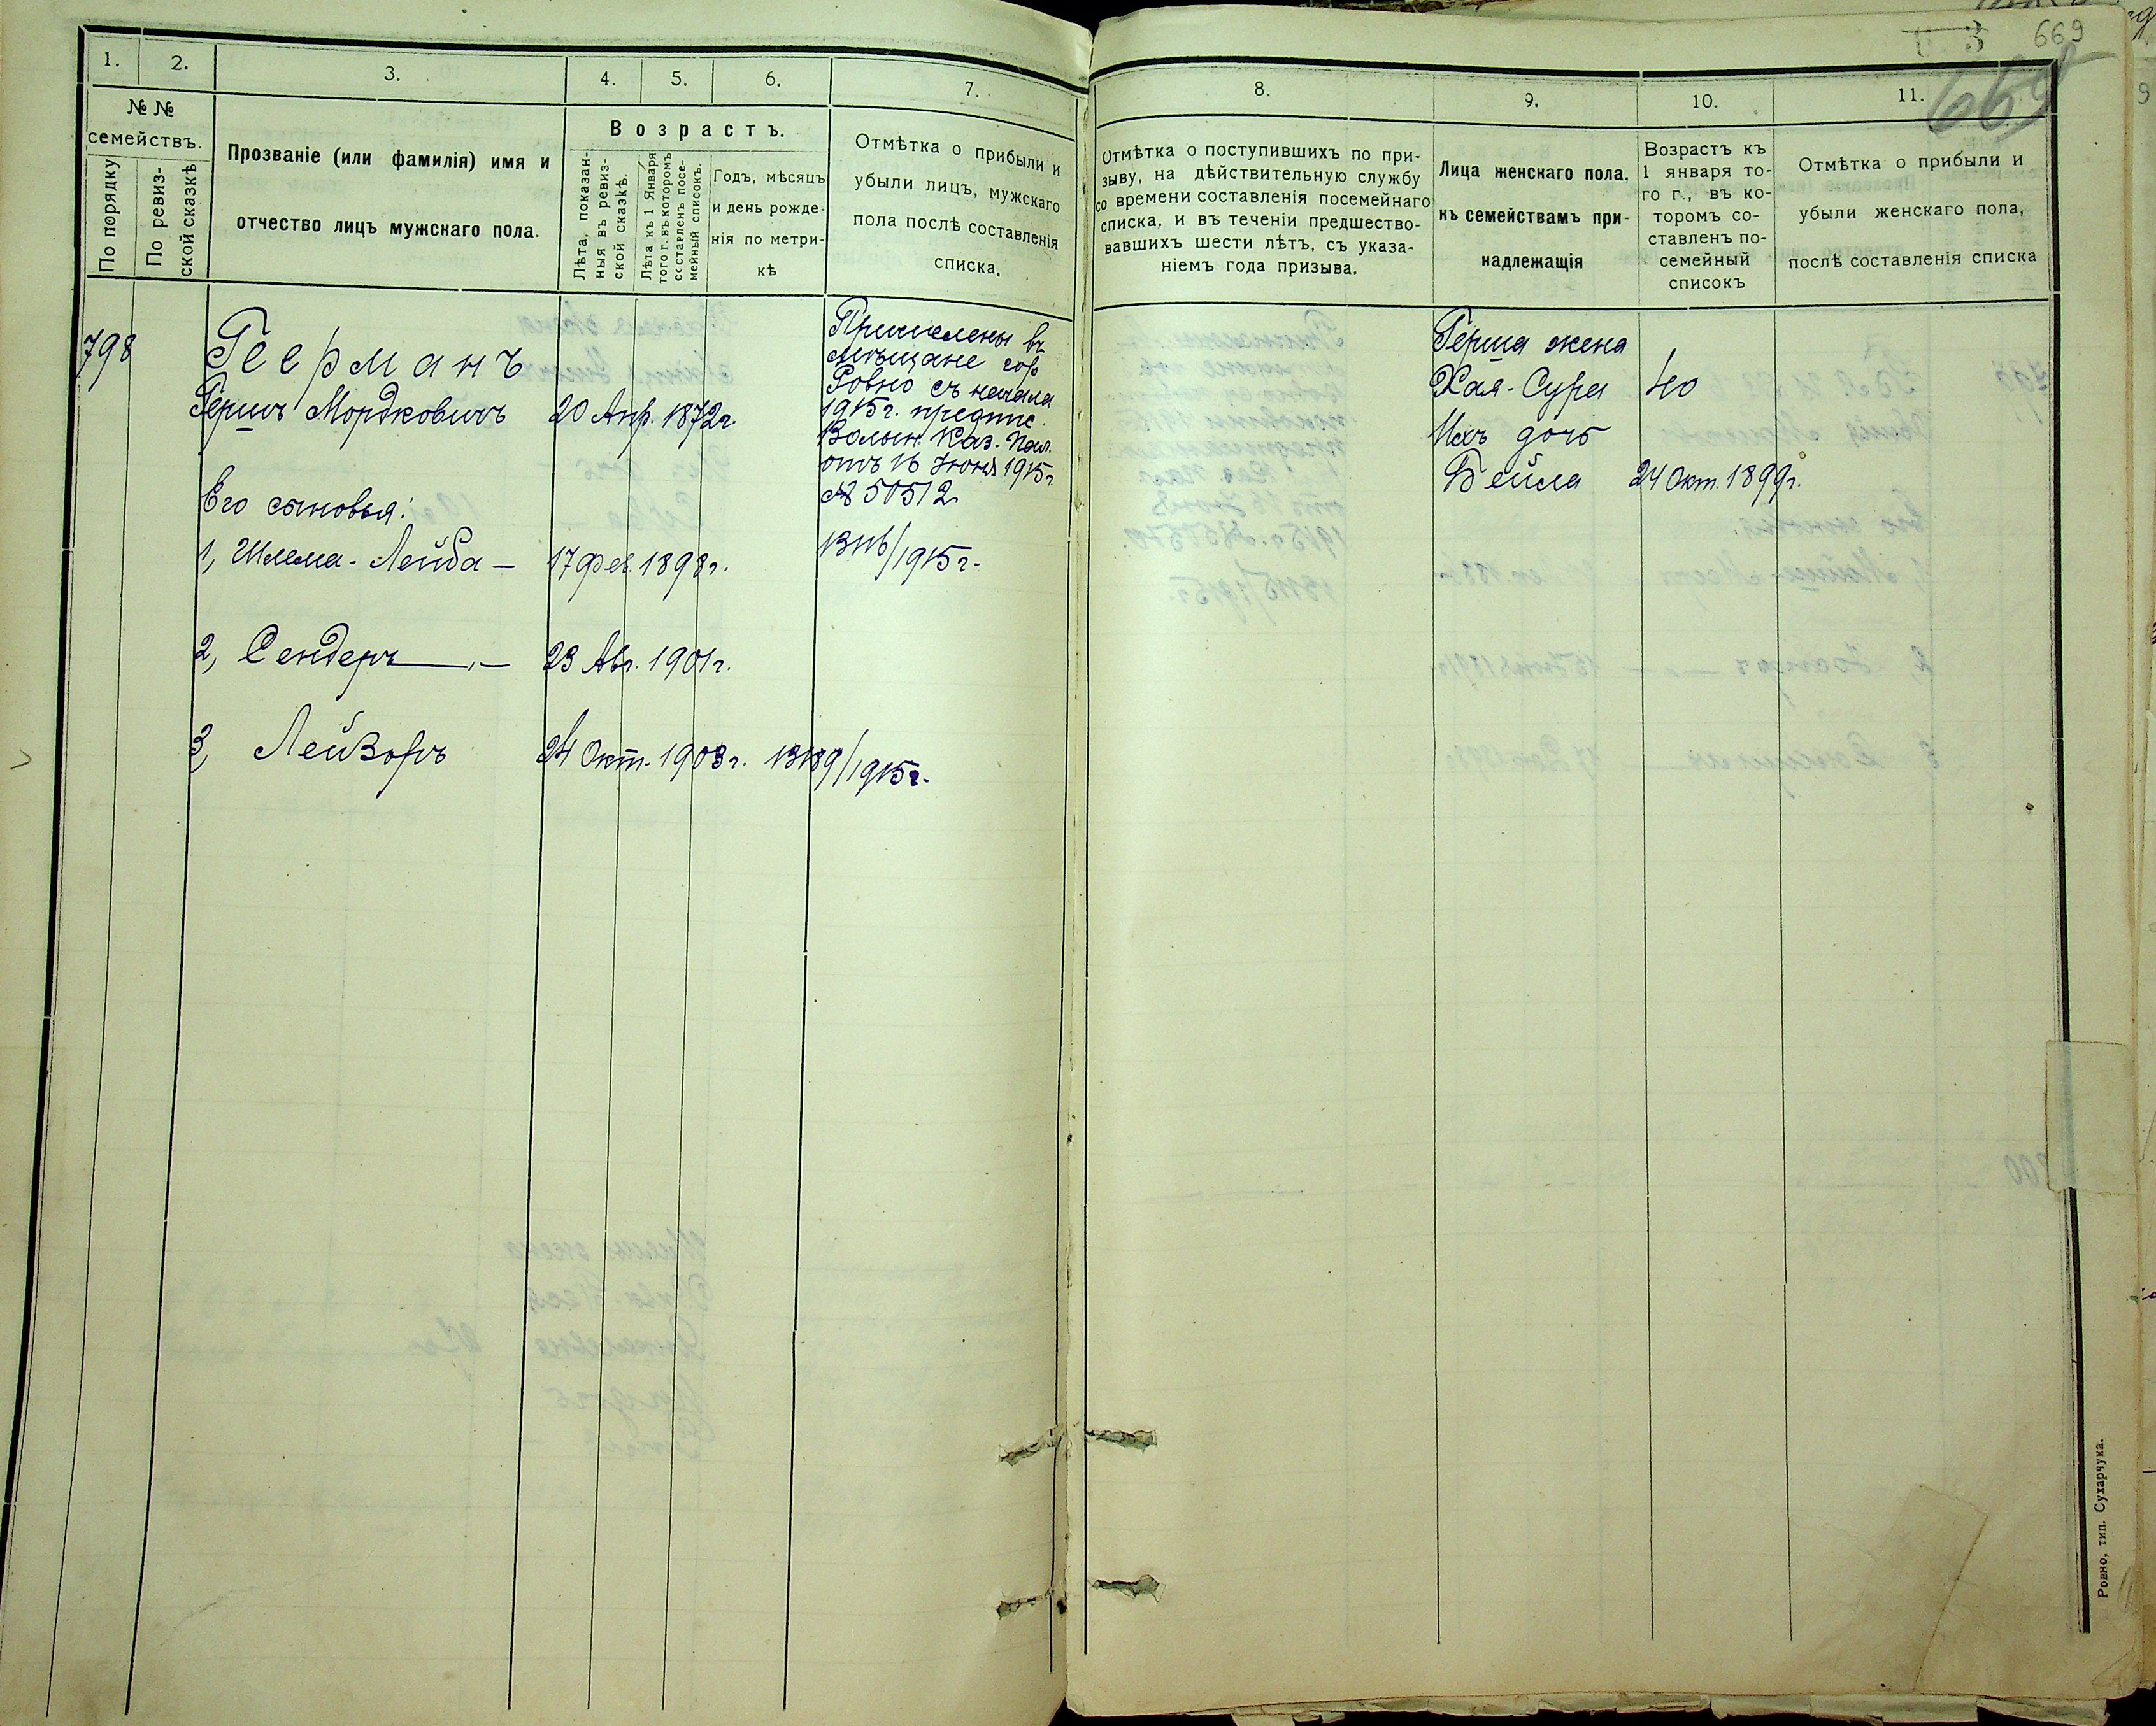 669
669
1.
2.
3.
4.
5.
6.
7.
№ №
семействъ.
По порядку
По ревиз-
ской сказкѣ
Прозваніе (или фамилія) имя и
отчество лицъ мужскаго пола.
Возрастъ.
Лѣта, показан-
ныя въ ревиз-
ской сказкѣ.
Лѣта къ 1 Января
того г. въ которомъ
составленъ посе-
мейный списокъ.
Годъ, мѣсяцъ
и день рожде-
нія по метри-
кѣ
Отмѣтка о прибыли и
убыли лицъ, мужскаго
пола послѣ составленія
списка.
798
Геерманъ
Гершъ Мордковичъ
20 Апр. 1872г.
Причислены въ
мѣщане гор
Ровно съ начала
1915г. предпис.
Волын. Каз. Пал.
отъ 16 Июня 1915г.
№ 50512
Его сыновья:
1, Шлема-Лейба —
17 Фев. 1898г.
1916/1915г.
2, Сендеръ —
23 Авг. 1901г.
3, Лейзоръ
24 Окт. 1903г.
/1915г.
8.
9.
10.
11.
Отмѣтка о поступившихъ по при-
зыву, на дѣйствительную службу
со времени составленія посемейнаго
списка, и въ теченіи предшество-
вавшихъ шести лѣтъ, съ указа-
ніемъ года призыва.
Лица женскаго пола,
къ семействамъ при-
надлежащія
Возрастъ къ
1 января то-
го г., въ ко-
торомъ со-
ставленъ по-
семейный
списокъ
Отмѣтка о прибыли и
убыли женскаго пола,
послѣ составленія списка
Герша жена
Хая-Сура
40
Ихъ дочь
Бейла
24 Окт. 1899г.
Ровно, тип. Сухарчука.